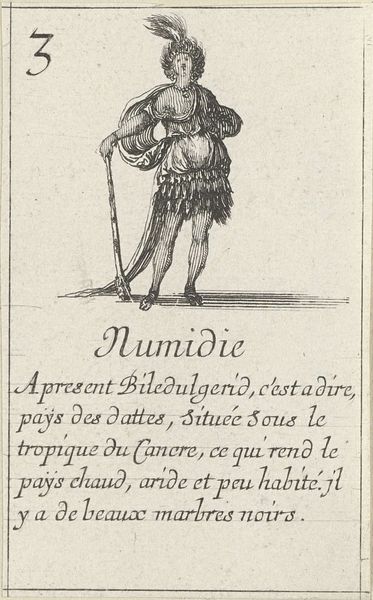 3
Numidie
Apresent Biledulgerid, c'est adire,
païs des dattes, Située Sous le
tropique du Cancre, ce qui rend le
païs chaud, aride et peu habité. jl
y a de beaux marbres noirs.